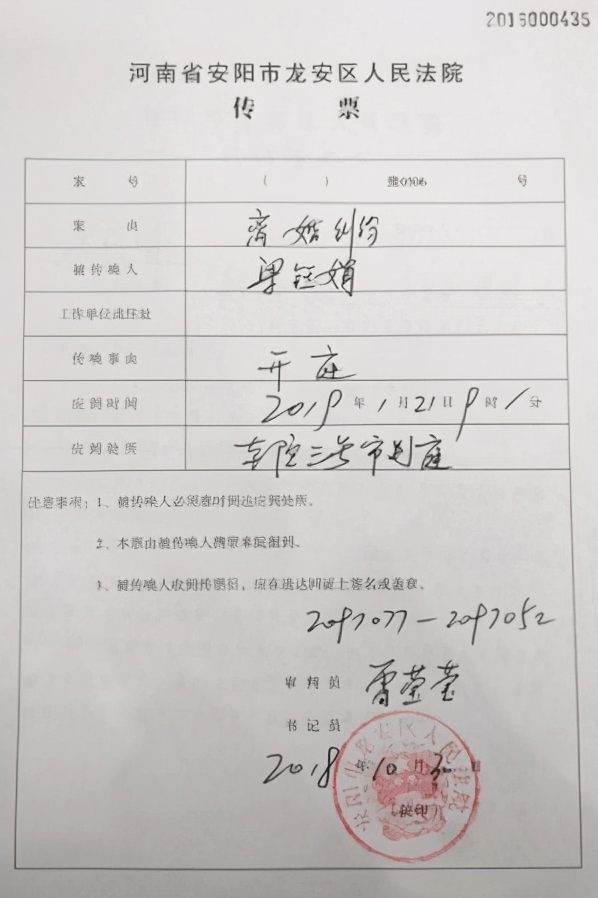 2015000435
河南省安阳市龙安区人民法院
传 票
案 号 ( ) 号
案 由 离婚纠纷
被传唤人
工作单位或住址
传唤事由 开庭
应到时间 2019年1月21日9时 分
应到处所 本院三号审判庭
注意事项：1、被传唤人必须准时到达应到处所。
2、本票由被传唤人携带来院报到。
3、被传唤人收到传票后，应在送达回证上签名或盖章。
审判员
书记员
2018年10月30日